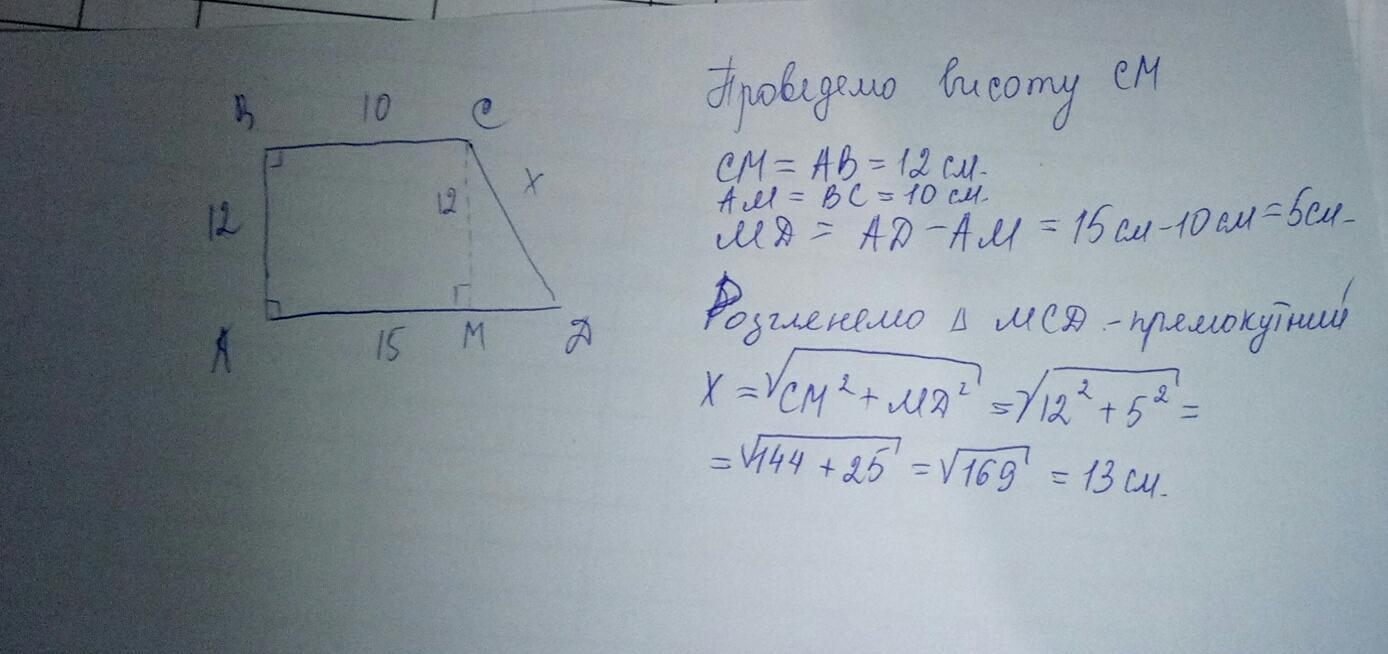 B 10 C
12 12 x
A 15 M D
Проведемо висоту CM
CM = AB = 12 см.
AM = BC = 10 см.
MD = AD - AM = 15 см - 10 см = 5 см.
Розгленемо Δ MCD - прямокутний
X = √CM² + MD² = √12² + 5² =
= √144 + 25 = √169 = 13 см.